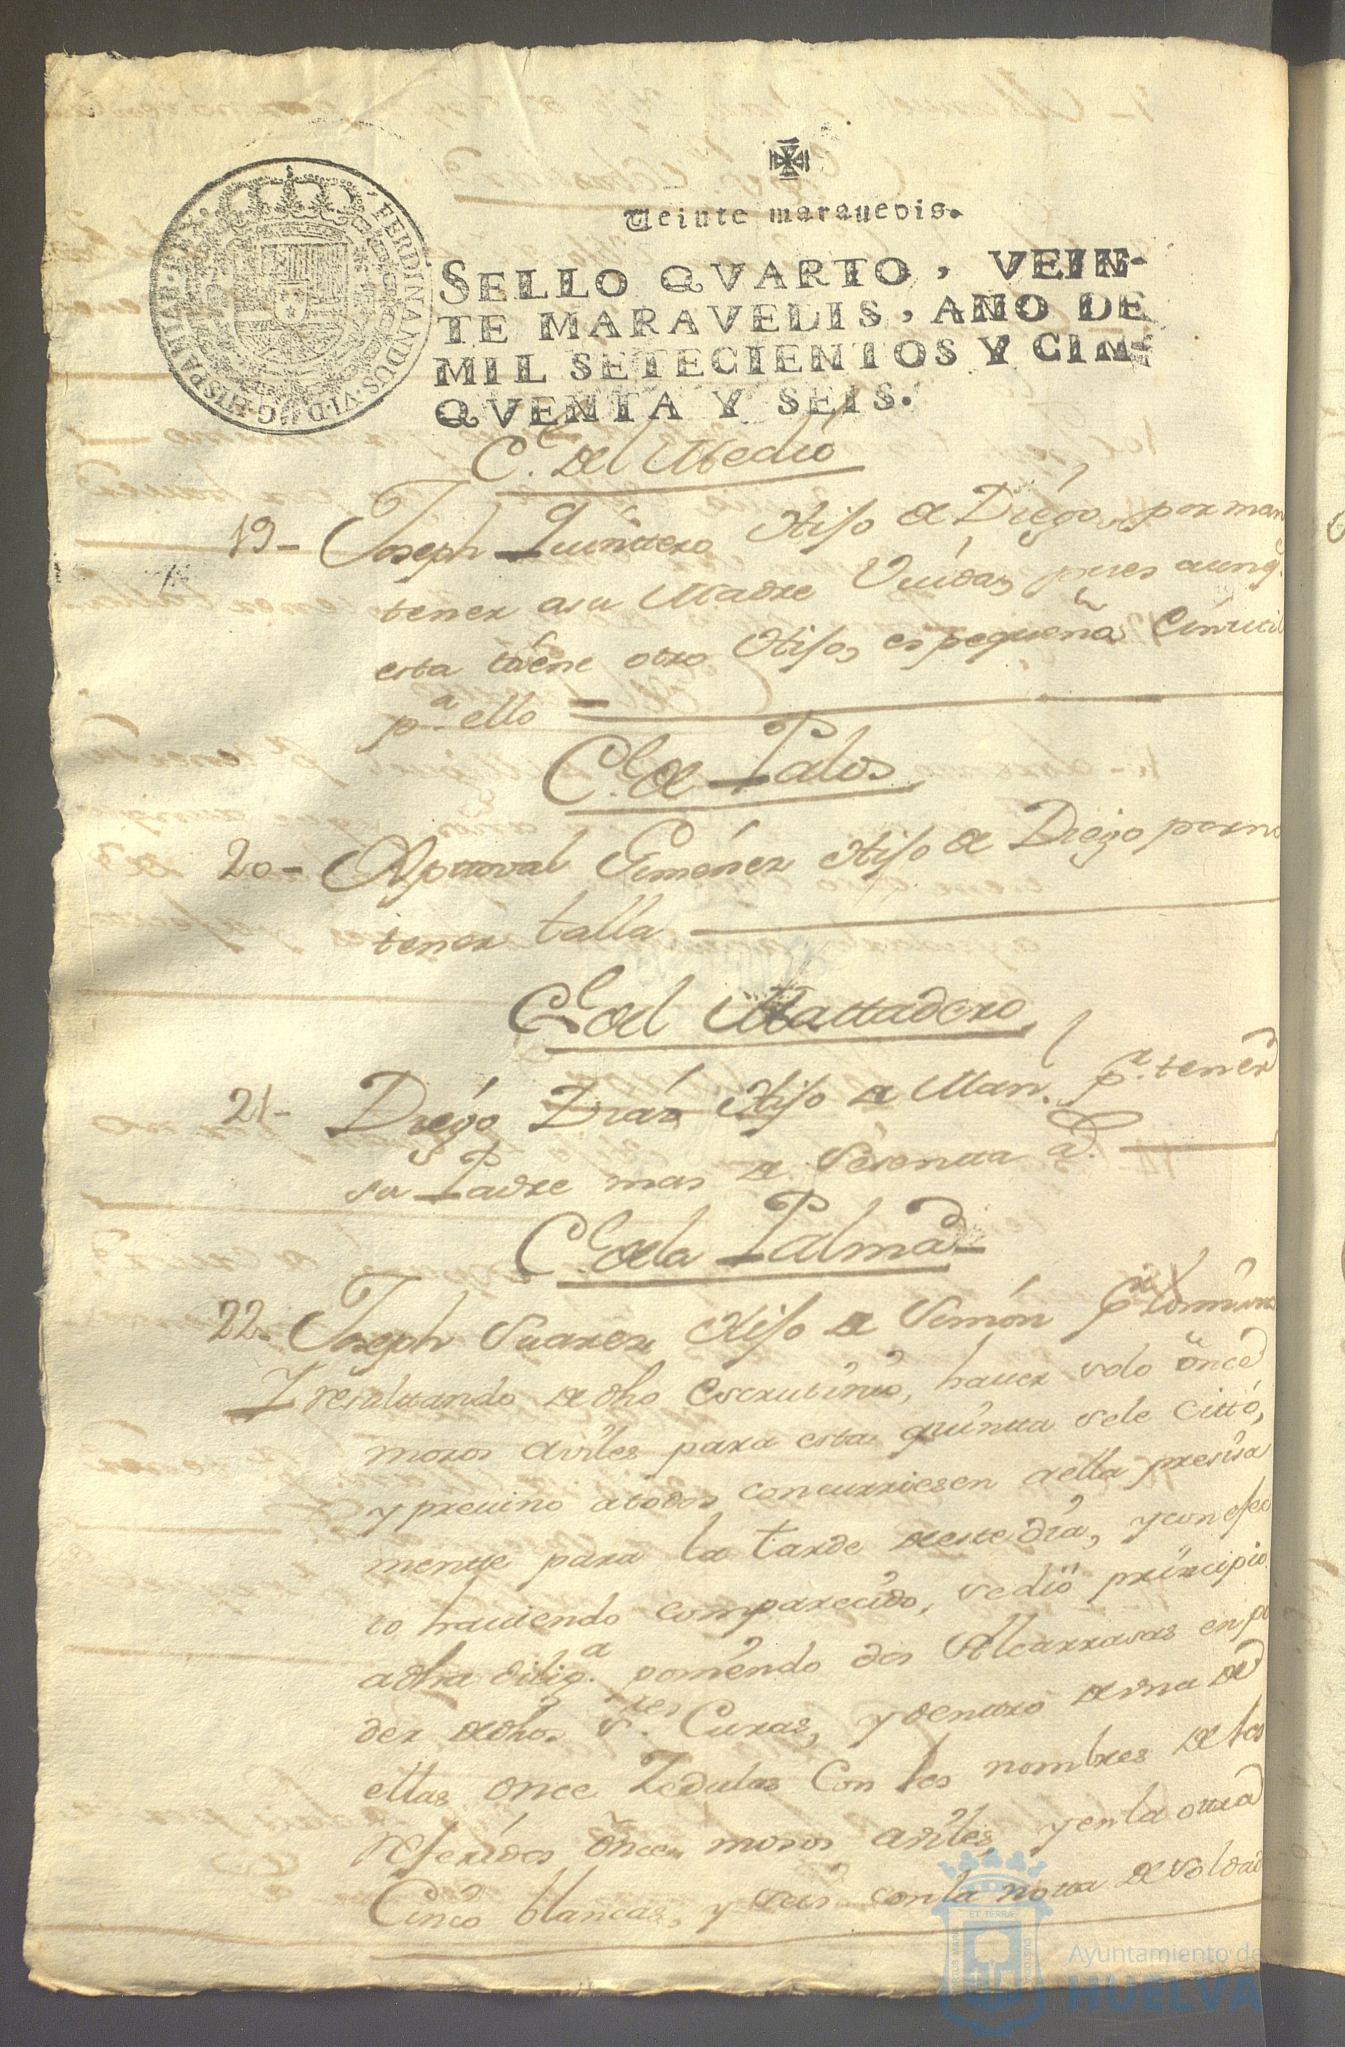 FERDINANDUS·VI·D·G·HISPANIAR·REX·
Veinte maravedis.
SELLO QVARTO, VEIN-
TE MARAVEDIS, AÑO DE
MIL SETECIENTOS Y CIN-
QVENTA Y SEIS.
C.e del Medio
19- Joseph Quinttero Hijo de Diego, por man
tener asu Madre Viuda, pues aunq.
esta tiene otro Hijo, es pequeño
p.a ello
C.e de Palos
20- Giménez Hijo de Diego por no
tener talla
C.e del Mattadero
21- Diégo Diáz Hijo de Man. p.r tener
su Padre mas de Sesentta a.s
C.e de la Palma
22- Joseph Suarez Hijo de Simón
Y resulttando de dho escrutinio, haver solo once
mosos aviles para esta quintta sele cittó,
y previno atodos concurriesen aella presisa
mentte para la tarde de este dia, y con efec
to haviendo comparecido, se dió principio
adha dilig.a poniendo dos Alcarrasas en po
der de dhos. S.res Curas, y dentro de una de
ellas once Zedulas con los nombres de los
referidos once mosos aviles, y en la ottra
Cinco blancas, y seis con la notta de Soldad
ET TERRA
Ayuntamiento de
HUELVA